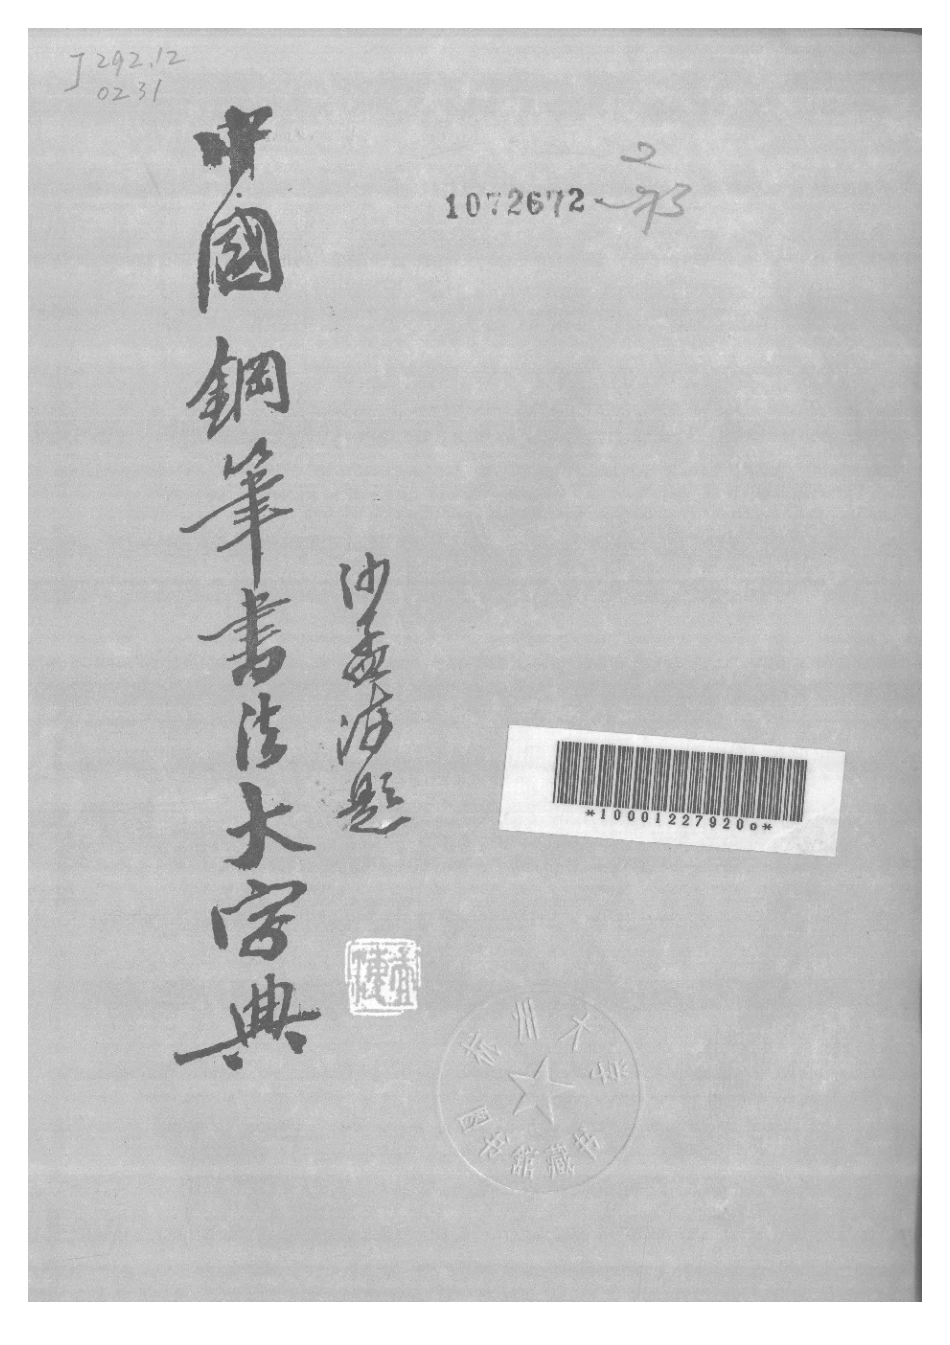 J292.12
0231
2
1072672
中國鋼筆書法大字典
沙孟海題
*10001227920o*
杭州大学
图书馆藏书